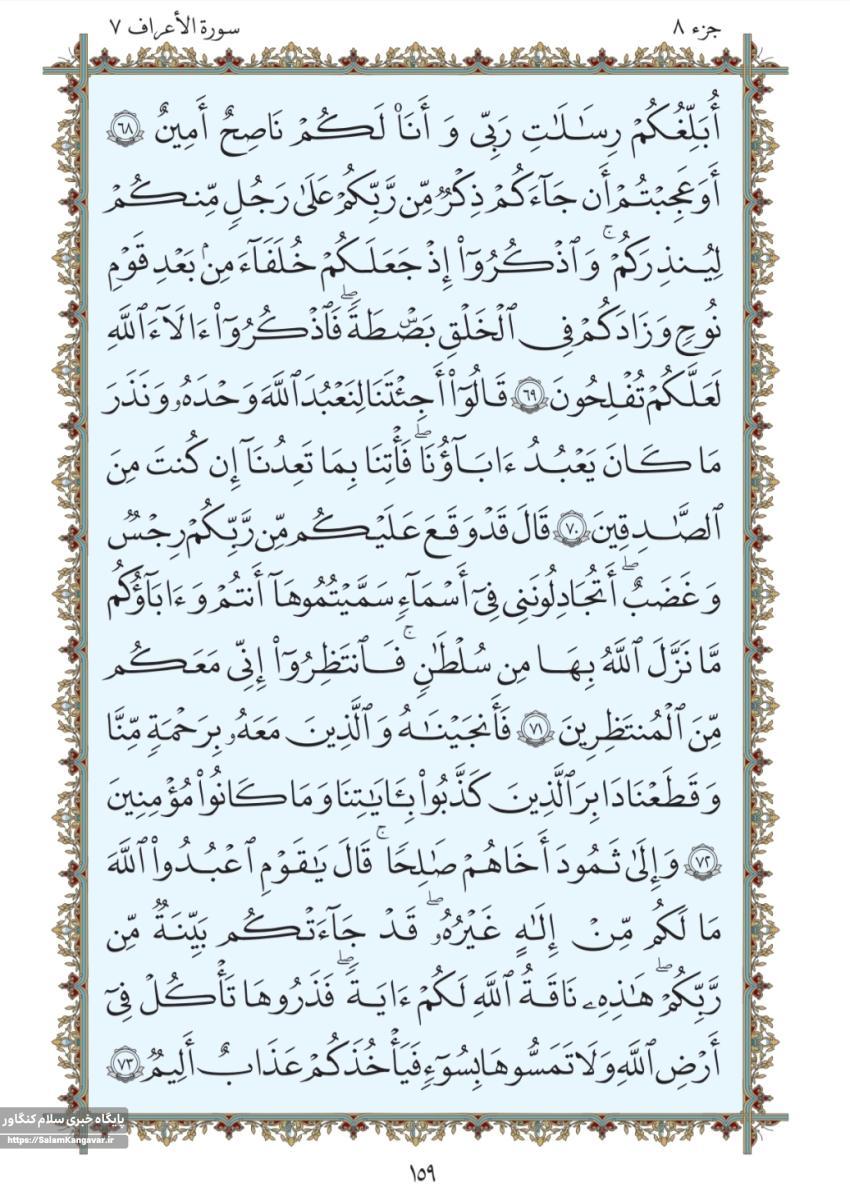 جزء ٨
سورة الأعراف ٧
أُبَلِّغُكُمْ رِسَـٰلَـٰتِ رَبِّى وَ أَنَا۠ لَكُمْ نَاصِحٌ أَمِينٌ ﴿٦٨﴾
أَوَعَجِبْتُمْ أَن جَآءَكُمْ ذِكْرٌ مِّن رَّبِّكُمْ عَلَىٰ رَجُلٍ مِّنكُمْ
لِيُنذِرَكُمْ ۚ وَٱذْكُرُوٓا۟ إِذْ جَعَلَكُمْ خُلَفَآءَ مِنۢ بَعْدِ قَوْمِ
نُوحٍ وَزَادَكُمْ فِى ٱلْخَلْقِ بَصْۜطَةً ۖ فَٱذْكُرُوٓا۟ ءَالَآءَ ٱللَّهِ
لَعَلَّكُمْ تُفْلِحُونَ ﴿٦٩﴾ قَالُوٓا۟ أَجِئْتَنَا لِنَعْبُدَ ٱللَّهَ وَحْدَهُۥ وَنَذَرَ
مَا كَانَ يَعْبُدُ ءَابَآؤُنَا ۖ فَأْتِنَا بِمَا تَعِدُنَآ إِن كُنتَ مِنَ
ٱلصَّـٰدِقِينَ ﴿٧٠﴾ قَالَ قَدْ وَقَعَ عَلَيْكُم مِّن رَّبِّكُمْ رِجْسٌ
وَغَضَبٌ ۖ أَتُجَـٰدِلُونَنِى فِىٓ أَسْمَآءٍ سَمَّيْتُمُوهَآ أَنتُمْ وَءَابَآؤُكُم
مَّا نَزَّلَ ٱللَّهُ بِهَا مِن سُلْطَـٰنٍ ۚ فَٱنتَظِرُوٓا۟ إِنِّى مَعَكُم
مِّنَ ٱلْمُنتَظِرِينَ ﴿٧١﴾ فَأَنجَيْنَـٰهُ وَٱلَّذِينَ مَعَهُۥ بِرَحْمَةٍ مِّنَّا
وَقَطَعْنَا دَابِرَ ٱلَّذِينَ كَذَّبُوا۟ بِـَٔايَـٰتِنَا وَمَا كَانُوا۟ مُؤْمِنِينَ
﴿٧٢﴾ وَإِلَىٰ ثَمُودَ أَخَاهُمْ صَـٰلِحًا ۚ قَالَ يَـٰقَوْمِ ٱعْبُدُوا۟ ٱللَّهَ
مَا لَكُم مِّنْ إِلَـٰهٍ غَيْرُهُۥ ۖ قَدْ جَآءَتْكُم بَيِّنَةٌ مِّن
رَّبِّكُمْ ۖ هَـٰذِهِۦ نَاقَةُ ٱللَّهِ لَكُمْ ءَايَةً ۖ فَذَرُوهَا تَأْكُلْ فِىٓ
أَرْضِ ٱللَّهِ وَلَا تَمَسُّوهَا بِسُوٓءٍ فَيَأْخُذَكُمْ عَذَابٌ أَلِيمٌ ﴿٧٣﴾
پایگاه خبری سلام کنگاور
https://SalamKangavar.ir
١٥٩